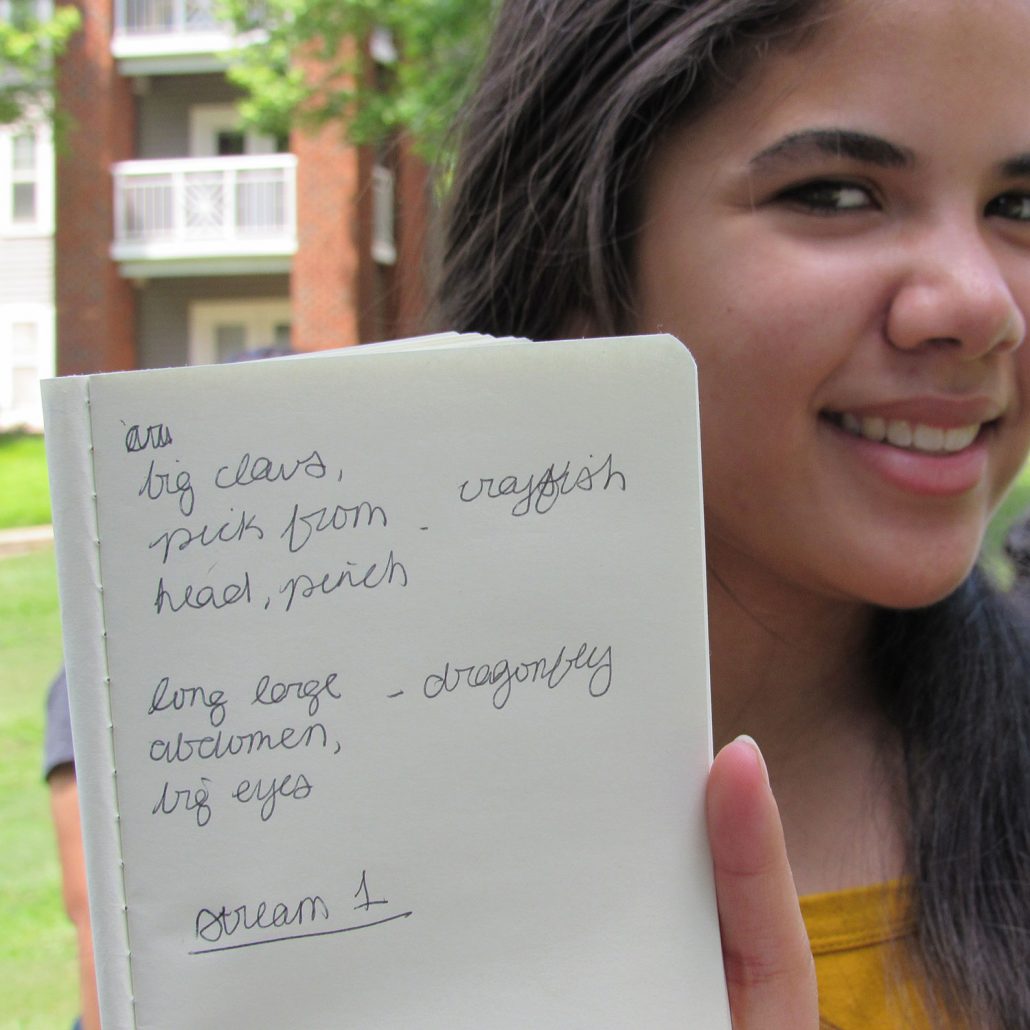 big claws,
pick from - crayfish
head, pinch
long large - dragonfly
abdomen,
big eyes
stream 1